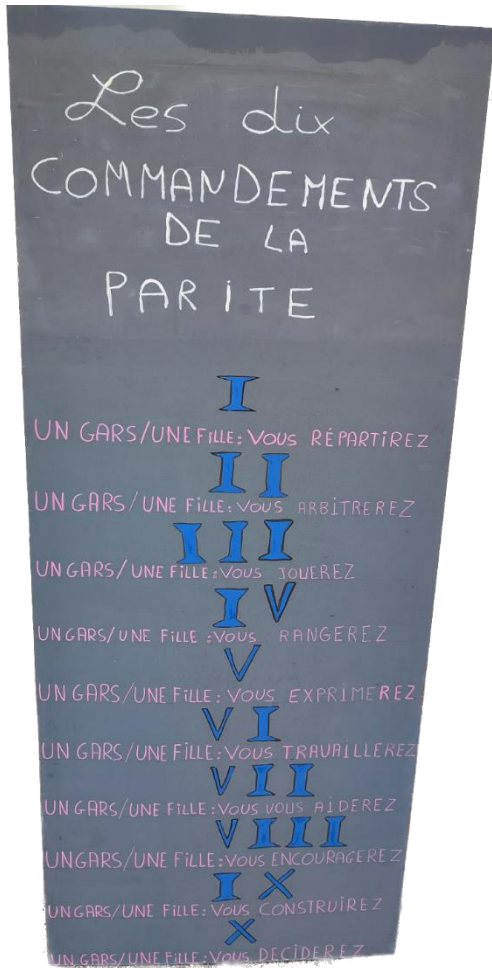 Les dix
COMMANDEMENTS
DE LA
PARITE
I
UN GARS/UNE FILLE: VOUS RÉPARTIREZ
II
UN GARS/UNE FILLE: VOUS ARBITREREZ
III
UN GARS/UNE FILLE: VOUS JOUEREZ
IV
UN GARS/UNE FILLE: VOUS RANGEREZ
V
UN GARS/UNE FILLE: VOUS EXPRIMEREZ
VI
UN GARS/UNE FILLE: VOUS TRAVAILLEREZ
VII
UN GARS/UNE FILLE: VOUS VOUS AIDEREZ
VIII
UN GARS/UNE FILLE: VOUS ENCOURAGEREZ
IX
UN GARS/UNE FILLE: VOUS CONSTRUIREZ
X
UN GARS/UNE FILLE: VOUS DECIDEREZ